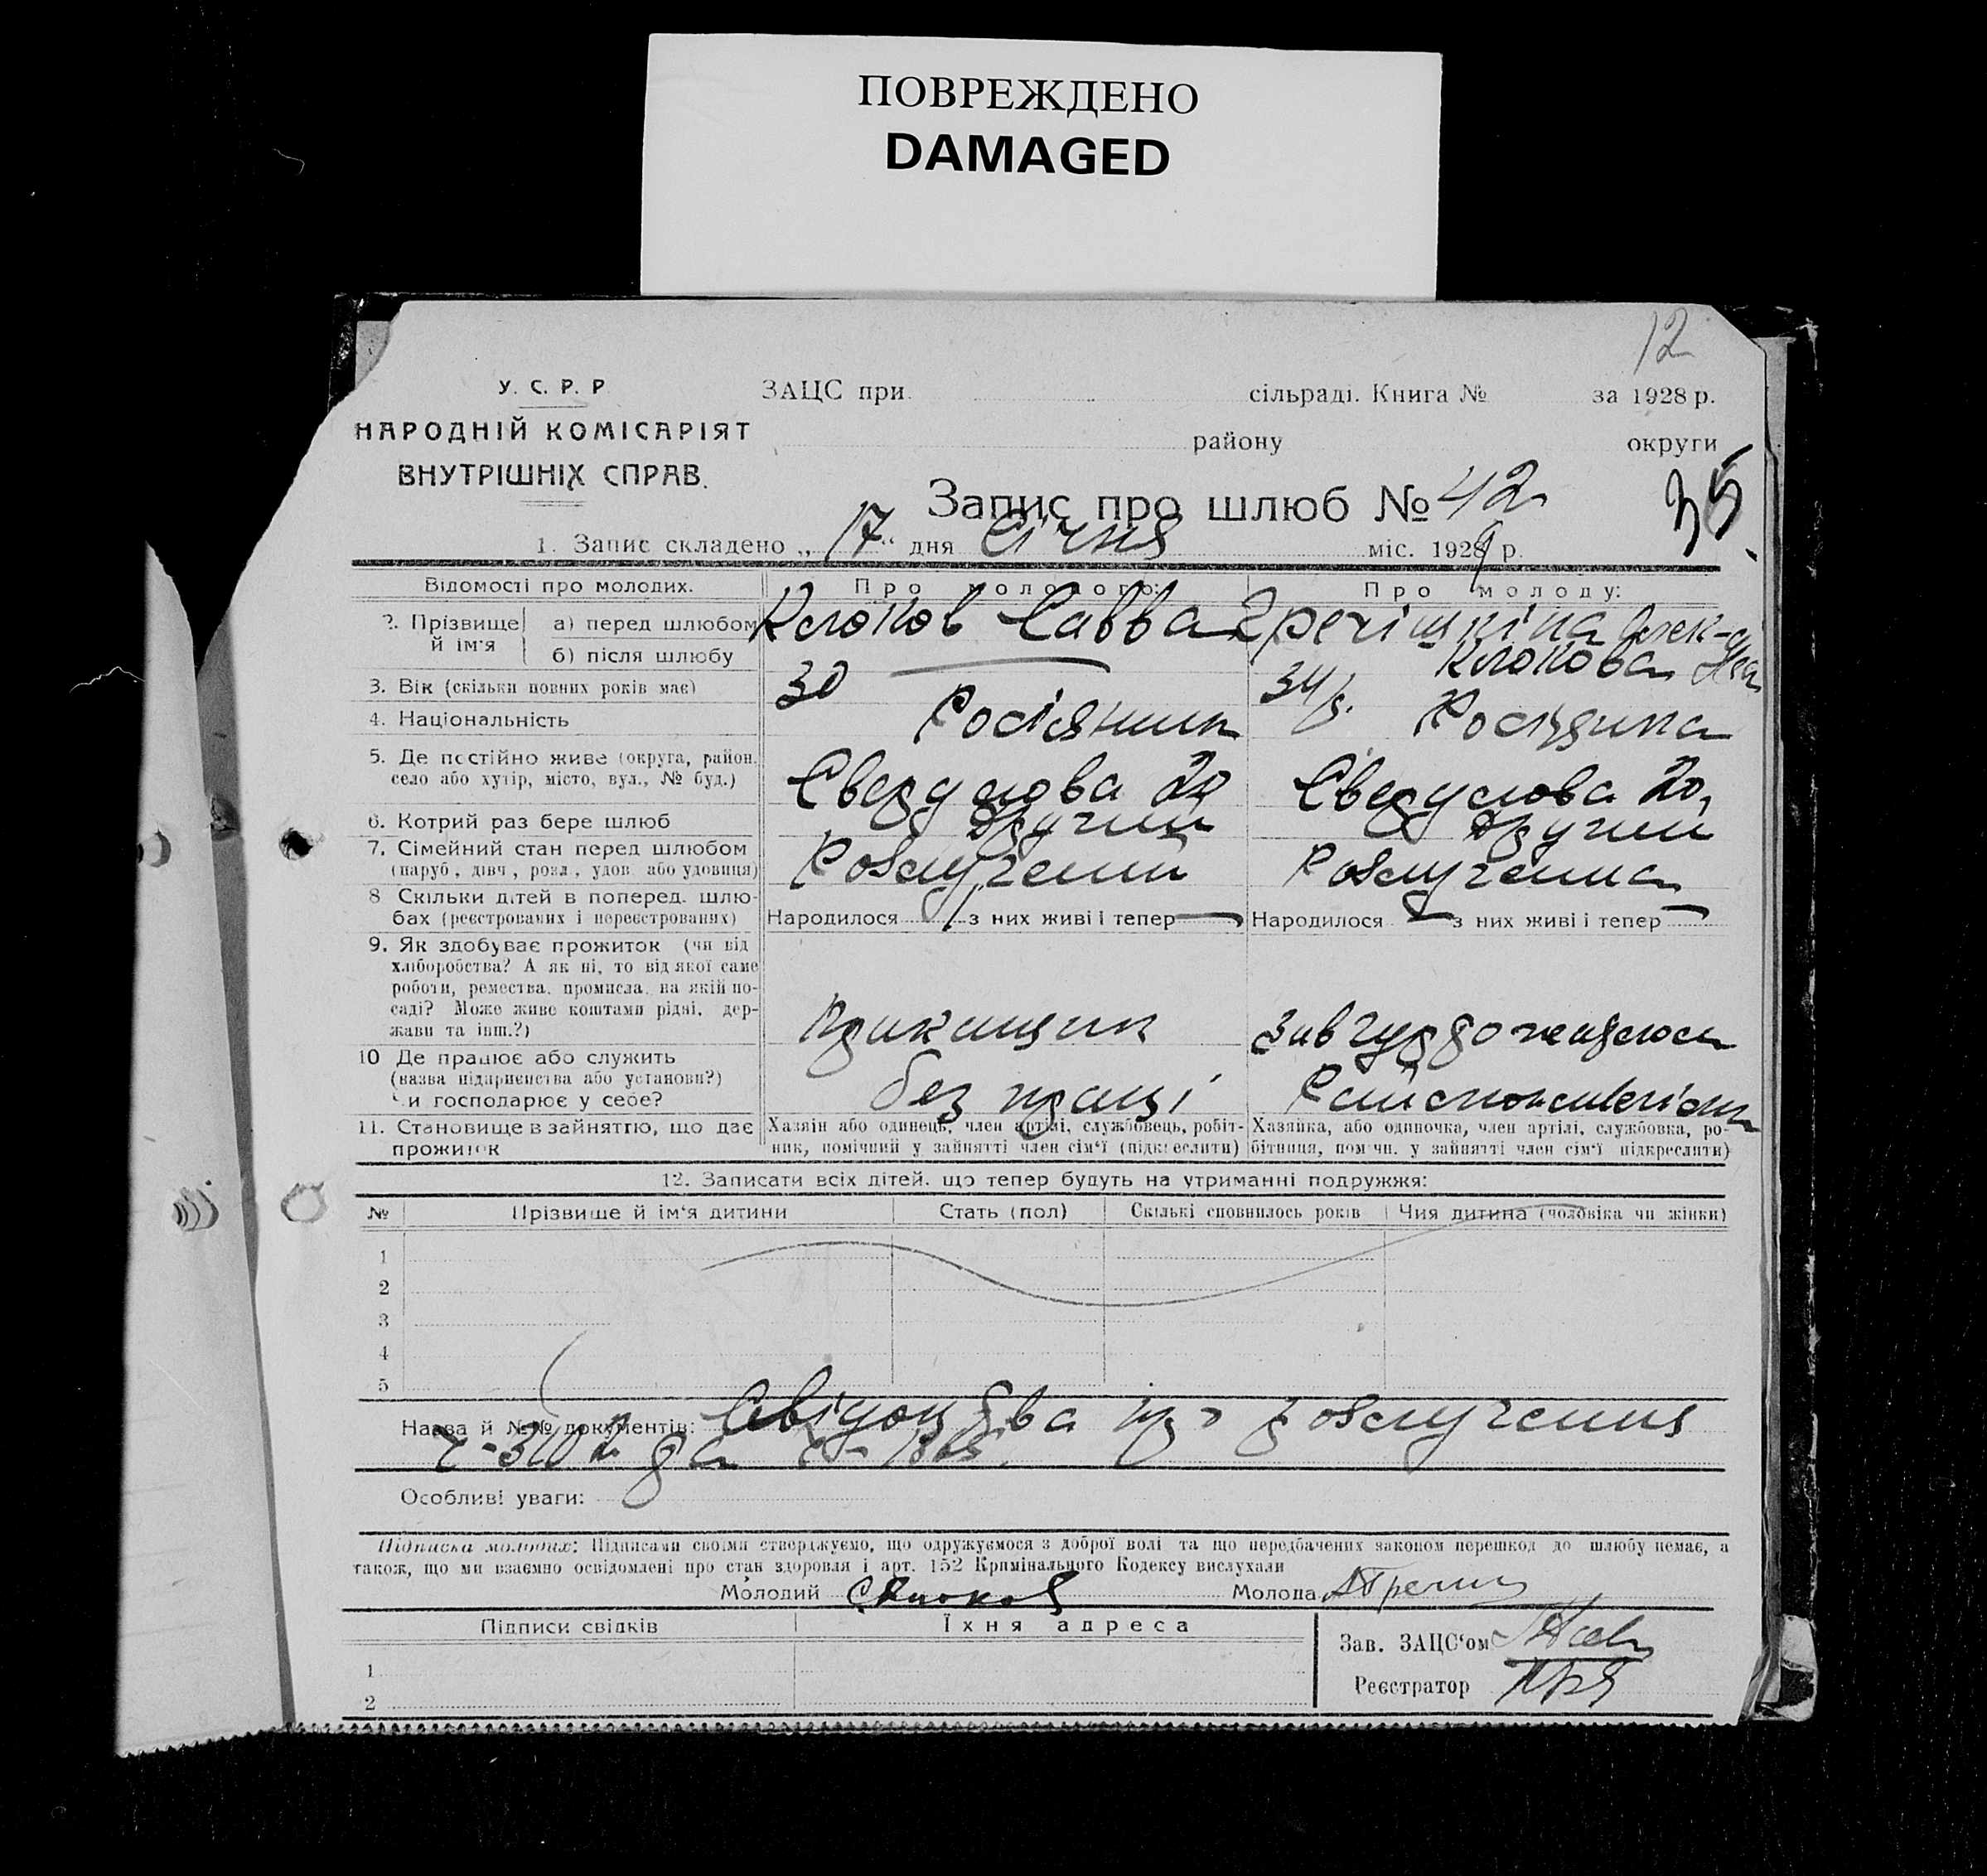 ПОВРЕЖДЕНО
DAMAGED
12
У. С. Р. Р.
НАРОДНІЙ КОМІСАРІЯТ
ВНУТРІШНІХ СПРАВ.
ЗАЦС при сільраді. Книга № за 1928 р.
району округи
35
Запис про шлюб № 42
1. Запис складено „ 17 “ дня Січня міс. 1929 р.
Відомості про молодих. Про молодого: Про молоду:
2. Прізвище й ім'я
а) перед шлюбом Клюков Савва Гречішкіна Олек-
б) після шлюбу Клюкова
3. Вік (скільки повних років має) 30 34 р.
4. Національність Росіянин Росіянка
5. Де постійно живе (округа, район,
село або хутір, місто, вул., № буд.) Свердлова 20 Свердлова 20,
6. Котрий раз бере шлюб Другий Другий
7. Сімейний стан перед шлюбом
(паруб., дівч., розл., удов. або удовиця) Розлучений Розлучена
8 Скільки дітей в поперед. шлю-
бах (реєстрованих і нереєстрованих) Народилося з них живі і тепер Народилося з них живі і тепер
9. Як здобуває прожиток (чи від
хліборобства? А як ні, то від якої саме
роботи, ремества, промисла, на якій по-
саді? Може живе коштами рідні, дер-
жави та інш.?) Прикащик
10 Де працює або служить
(назва підприємства або установи?)
Чи господарює у себе? без праці
11. Становище в зайняттю, що дає
прожиток
Хазяїн або одинець, член артілі, службовець, робіт-
ник, помічний у зайнятті член сім'ї (підкреслити)
Хазяйка, або одиночка, член артілі, службовка, ро-
бітниця, помічн. у зайнятті член сім'ї підкреслити)
12. Записати всіх дітей, що тепер будуть на утриманні подружжя:
№ Прізвище й ім'я дитини Стать (пол) Скількі сповнилось років Чия дитина (чоловіка чи жінки)
1
2
3
4
5
Назва й №№ документів: Свідоцтва про розлучення
Особливі уваги:
Підписка молодих: Підписами своїми стверджуємо, що одружуємося з доброї волі та що передбачених законом перешкод до шлюбу немає, а
також, що ми взаємно освідомлені про стан здоровля і арт. 152 Кримінального Кодексу вислухали
Молодий СКлюков Молода АГречиш
Підписи свідків Їхня адреса
Зав. ЗАЦС'ом
Реєстратор
1
2